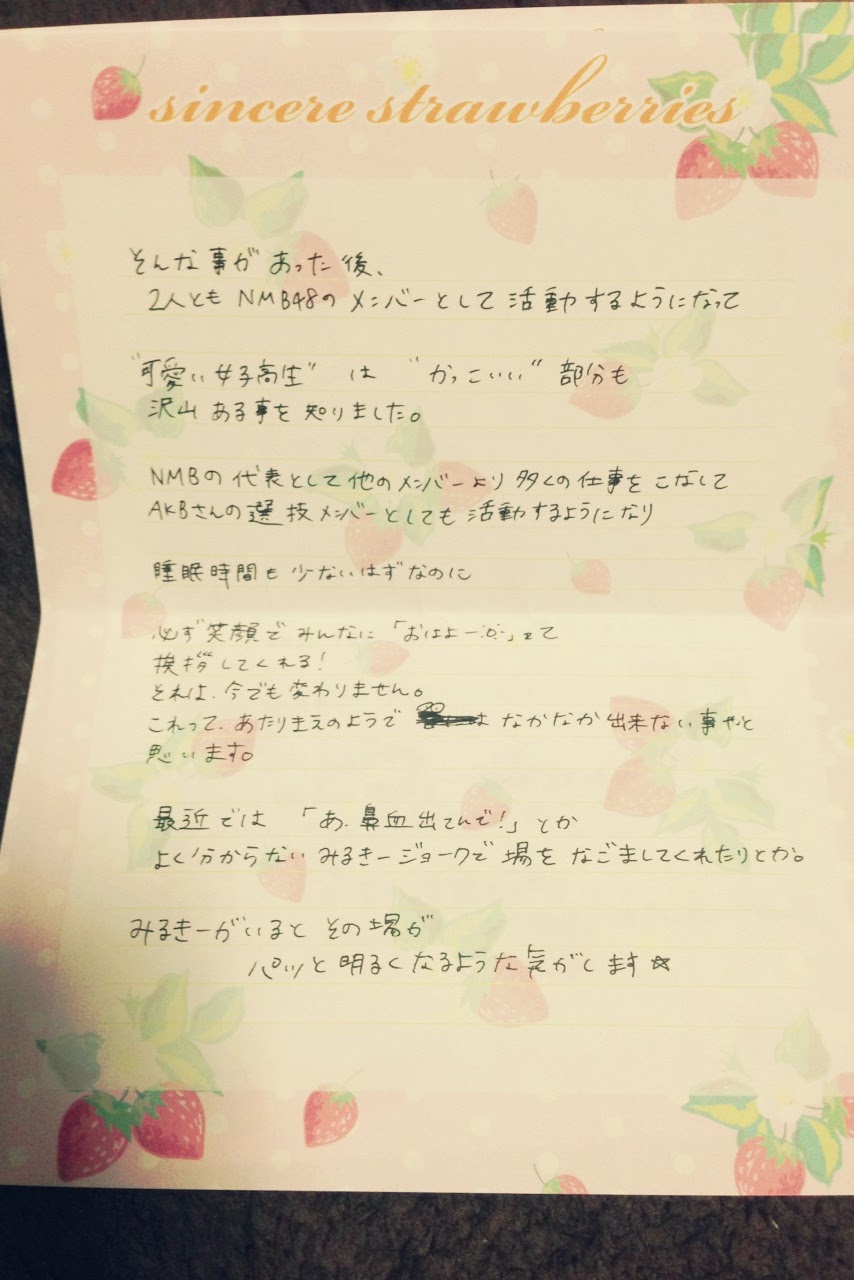 sincere strawberries
そんな事があった後、
2人とも NMB48の メンバーとして 活動するようになって
"可愛い女子高生" は "かっこいい" 部分も
沢山 ある事を 知りました。
NMBの 代表として 他のメンバーより 多くの仕事を こなして
AKBさんの 選抜メンバーとしても 活動するようになり
睡眠時間も 少ないはずなのに
必ず 笑顔で みんなに「おはよー」って
挨拶してくれる!
それは、今でも変わりません。
これって、あたりまえのようで なかなか 出来ない事やと
思います。
最近では 「あ、鼻血出てんで!」とか
よく分からない みるきージョークで 場を なごましてくれたりとか。
みるきーがいると その場が
パッと 明るくなるような気がします☆